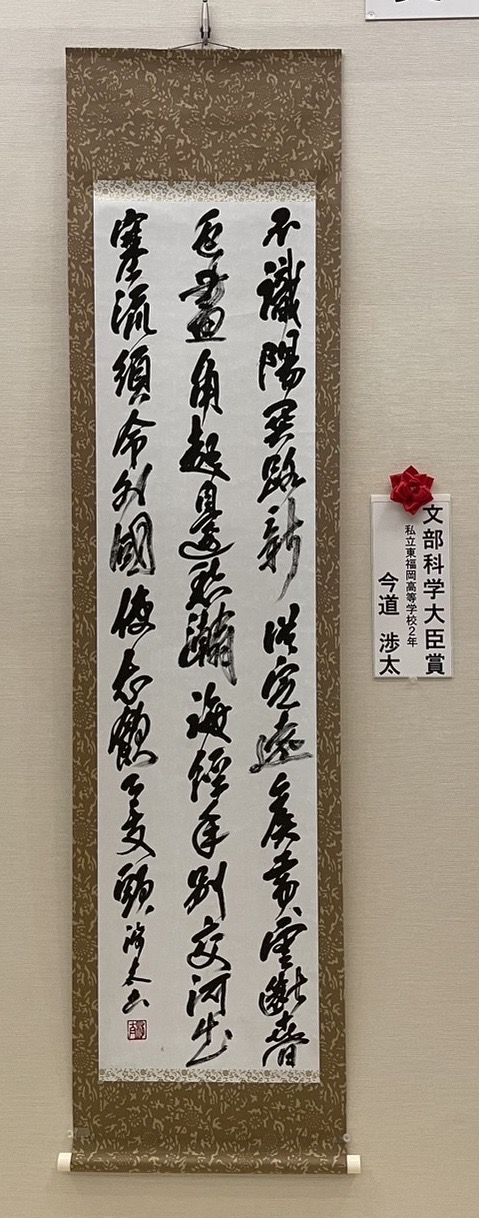 不識陽関路新従定遠侯黄雲断春
色畫角起邊愁瀚海經年別交河出
塞流須令外國使知飲月支頭 渉太書
文部科学大臣賞
私立東福岡高等学校2年
今道 渉太